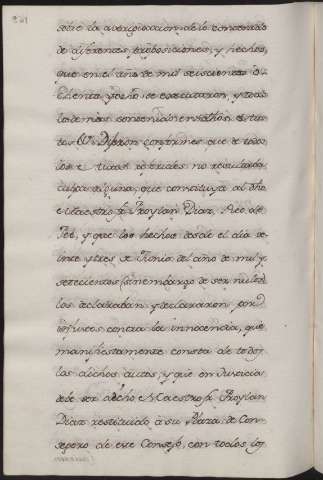 sobre la averiguacion de lo contenido
de diferentes exposiciones, y hechos,
que en el año de mil seiscientos o-
chenta y ocho se executaron, y todo
lo demas contenido en
tos Dixeron conformes que de todo
los autos referidos no resultaba
culpa alguna, que constituya al dho
Maestro fr. Froylan Diaz, Reo de
Fee, y que los hechos desde el dia ve-
inte y tres de Junio del año de mil y
setecientos (sin embargo de ser nulos)
los declaraban y declararon por
injustos contra la innocencia, que
manifiestamente consta de todos
los dichos autos, y que en Justicia
debe ser dicho Maestro fr. Froylan
Diaz restituido a su Plaza de Con-
sejero de este Consejo, con todos los